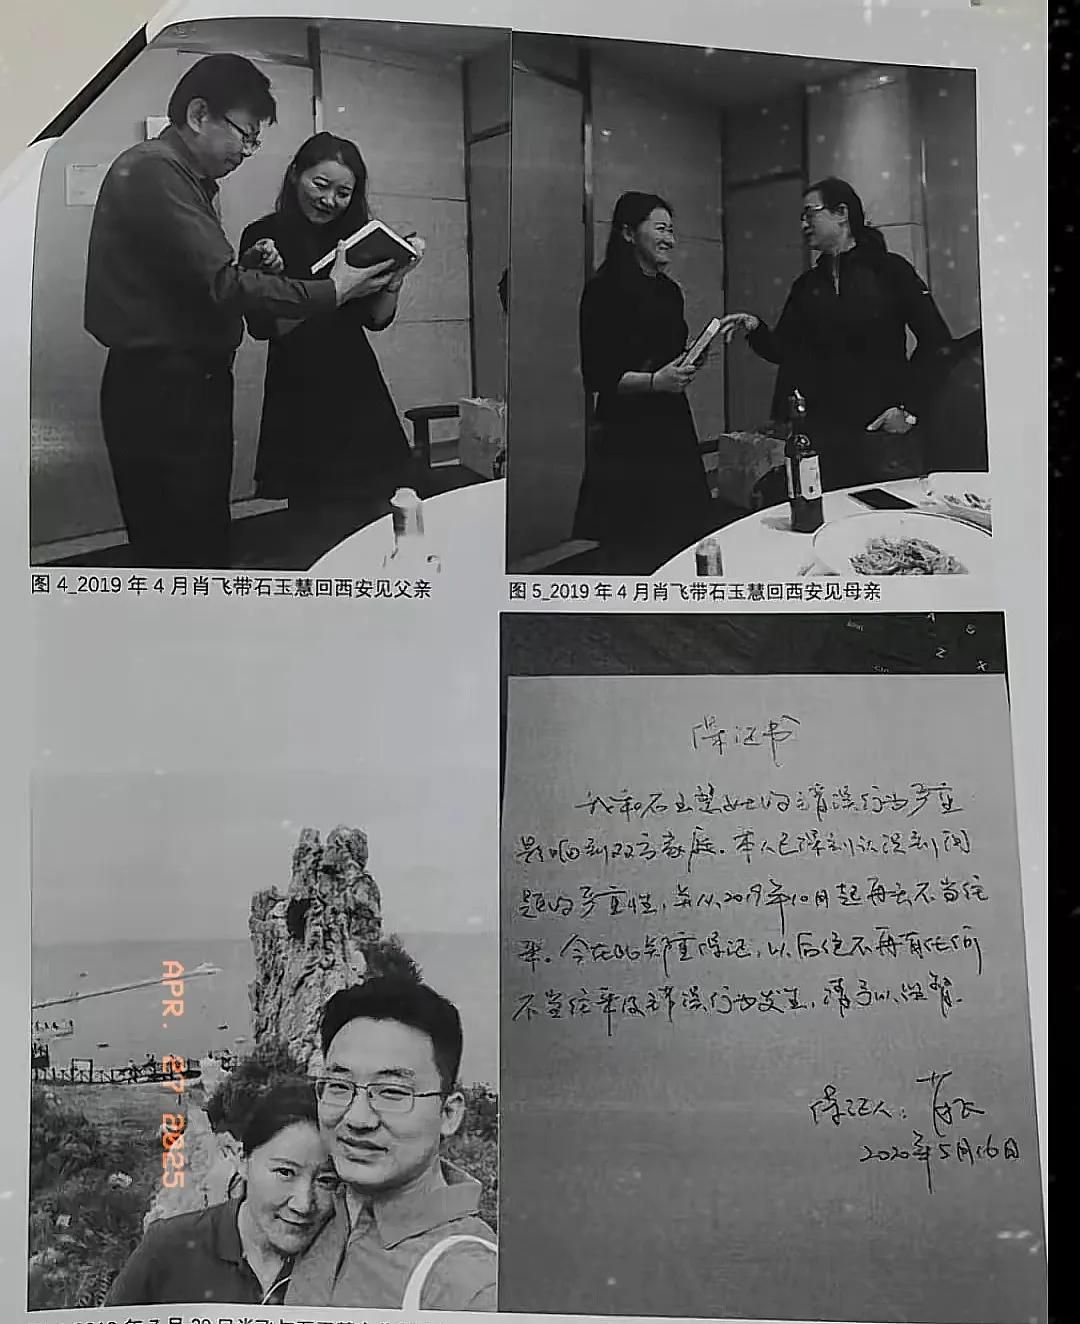 图 4_2019 年 4 月肖飞带石玉慧回西安见父亲
图 5_2019 年 4 月肖飞带石玉慧回西安见母亲
保证书
我和石玉慧女士的错误行为严重
影响到双方家庭。本人已深刻认识到问
题的严重性，并从2019年10月起再无不当往
来。今在此郑重保证，以后绝不再有任何
不当往来及错误行为发生，请予以监督。
保证人：肖飞
2020年5月16日
APR. 27 2025
年 7 月 20 日肖飞与石玉慧